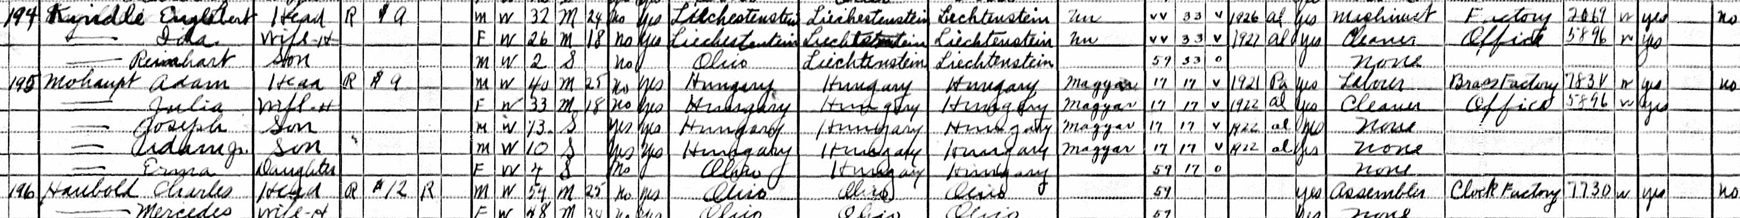 194 Kindle Englebert Head R $9 M W 32 M 24 No Yes Liechestenstein Liechestenstein Liechtenstein Un VV 33 V 1926 al yes Machinist Factory 2069 w yes no
— Ida Wife-H F W 26 M 18 no yes Liechestentein Liechtenstein Liechtenstein Un VV 33 V 1927 al yes Cleaner Office 5896 w yes
— Reinhart Son M W 2 S no Ohio Liechtenstein Liechtenstein 59 33 0 none
195 Mohaupt Adam Head R $9 M W 40 M 25 no yes Hungary Hungary Hungary Magyar 17 17 V 1921 Pa yes Laborer Brass Factory 7834 w yes no
— Julia Wife-H F W 33 M 18 No yes Hungary Hungary Hungary Magyar 17 17 V 1922 al yes Cleaner Office 5896 w yes
— Joseph Son M W 13 S Yes yes Hungary Hungary Hungary Magyar 17 17 V 1922 al yes none
— Adam Jr. Son M W 10 S Yes Yes Hungary Hungary Hungary Magyar 17 17 V 1922 al yes none
— Erma Daughter F W 4 S No Ohio Hungary Hungary 59 17 0 none
196 Haubold Charles Head R $12 R M W 54 M 25 no yes Ohio Ohio Ohio 59 yes Assembler Clock Factory 7730 w yes no
— Mercedes Wife-H F W 48 M no yes Ohio Ohio Ohio 59 yes none